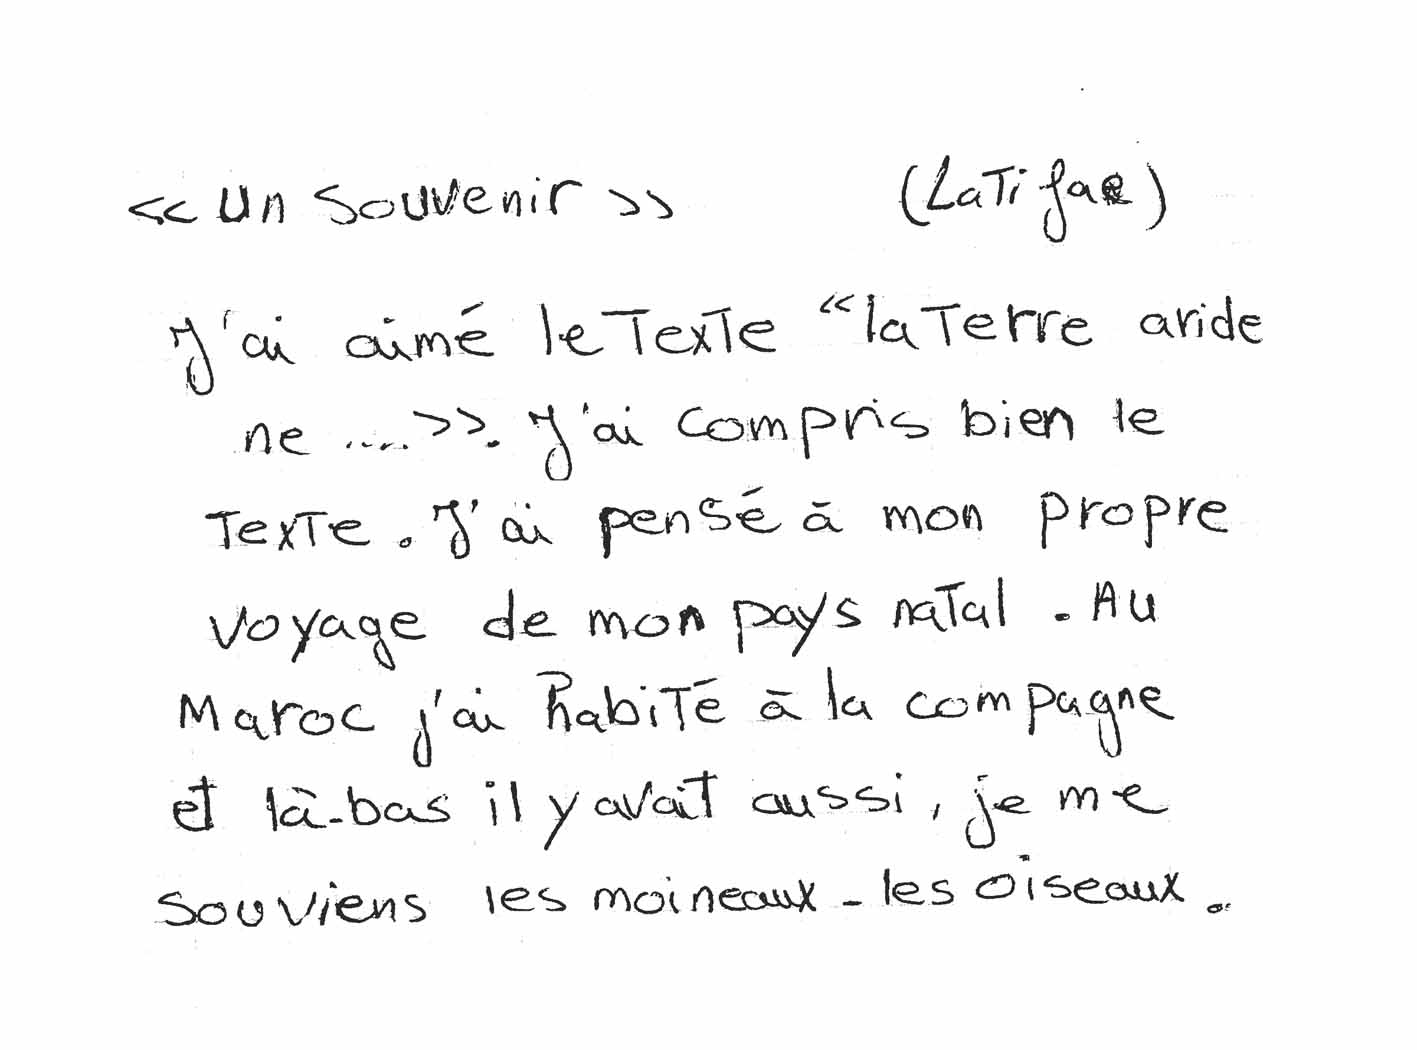 << un souvenir >> (Latifa)
J'ai aimé le texte “la terre aride
ne ....>>. J'ai compris bien le
texte. J'ai pensé à mon propre
voyage de mon pays natal. Au
Maroc j'ai habité à la compagne
et là-bas il y avait aussi, je me
souviens les moineaux - les oiseaux.